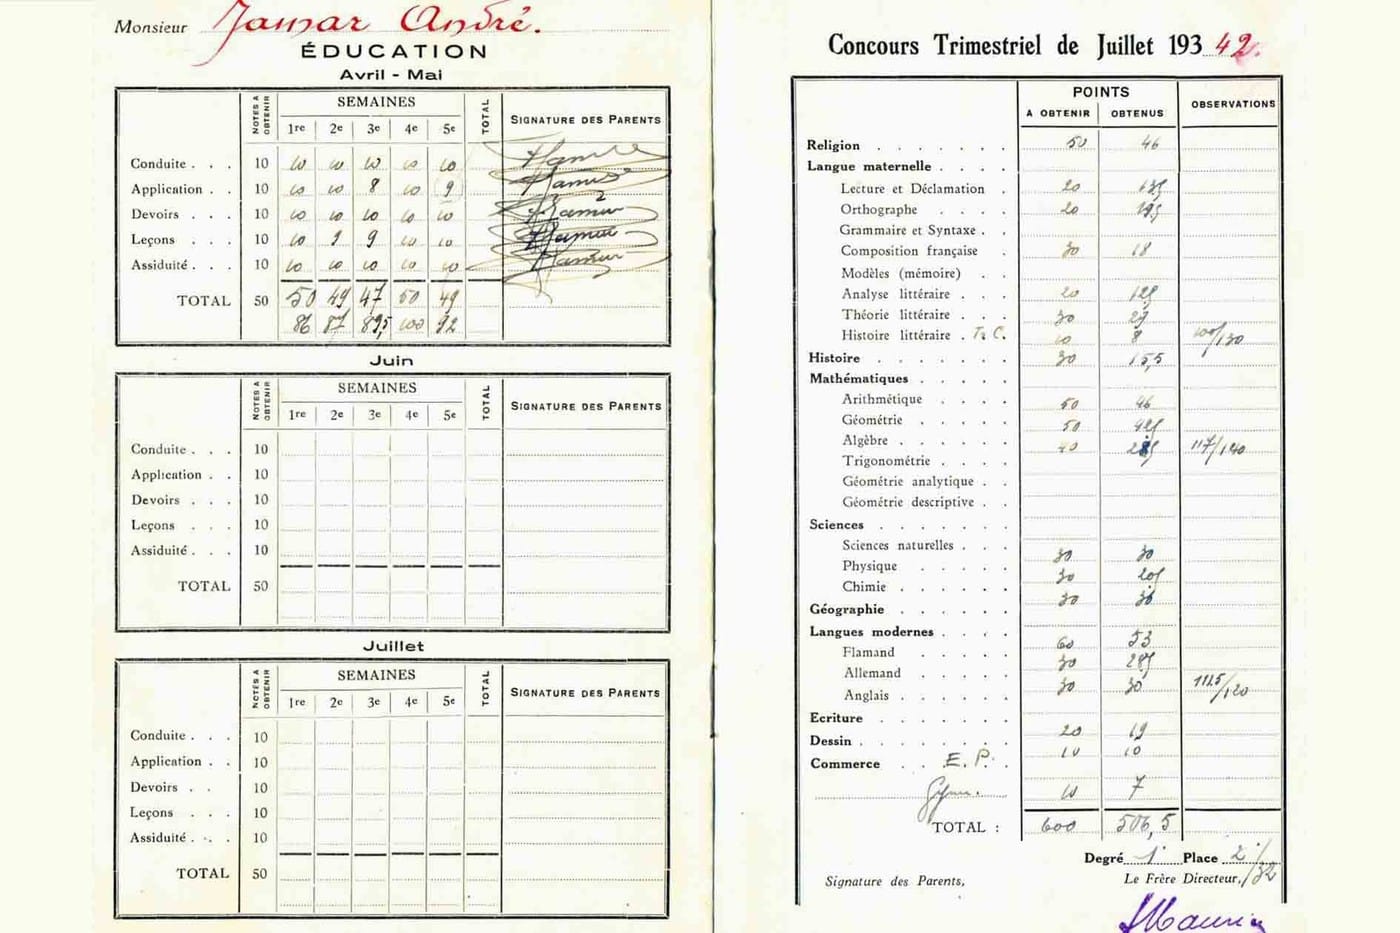 Monsieur Jamar André.
ÉDUCATION
Avril - Mai
NOTES A OBTENIR SEMAINES TOTAL SIGNATURE DES PARENTS
1re 2e 3e 4e 5e
Conduite . . . 10 10 10 10 10 10
Application . . 10 10 10 8 10 9
Devoirs . . . 10 10 10 10 10 10
Leçons . . . 10 10 9 9 10 10
Assiduité . . . 10 10 10 10 10 10
TOTAL 50 50 49 47 50 49
86 87 89,5 100 92
Juin
NOTES A OBTENIR SEMAINES TOTAL SIGNATURE DES PARENTS
1re 2e 3e 4e 5e
Conduite . . . 10
Application . . 10
Devoirs . . . 10
Leçons . . . 10
Assiduité . . . 10
TOTAL 50
Juillet
NOTES A OBTENIR SEMAINES TOTAL SIGNATURE DES PARENTS
1re 2e 3e 4e 5e
Conduite . . . 10
Application . . 10
Devoirs . . 10
Leçons . . . 10
Assiduité . . . 10
TOTAL 50
Concours Trimestriel de Juillet 193 42.
POINTS OBSERVATIONS
A OBTENIR OBTENUS
Religion . . . . . . . 50 46
Langue maternelle . . . .
Lecture et Déclamation . 20
Orthographe . . . . 20 19,5
Grammaire et Syntaxe . .
Composition française . 30 18
Modèles (mémoire) . .
Analyse littéraire . . . 20
Théorie littéraire . . . 30
Histoire littéraire . T. C. 10 8
Histoire . . . . . . . 30 15,5
Mathématiques . . . . .
Arithmétique . . . . 50 46
Géométrie . . . . . 50
Algèbre . . . . . . 40 117/140
Trigonométrie . . . .
Géométrie analytique . .
Géométrie descriptive . .
Sciences . . . . . . .
Sciences naturelles . . . 30 30
Physique . . . . . 30
Chimie . . . . . . 30
Géographie . . . . . .
Langues modernes . . . . 60 53
Flamand . . . . . 30
Allemand . . . . . 30 30 111,5/120
Anglais . . . . . .
Ecriture . . . . . . . 20 19
Dessin . . . . . . . 10 10
Commerce . . E. P. .
Gym. 10 7
TOTAL : 600 506,5
Degré 1 Place 2/32
Signature des Parents, Le Frère Directeur,